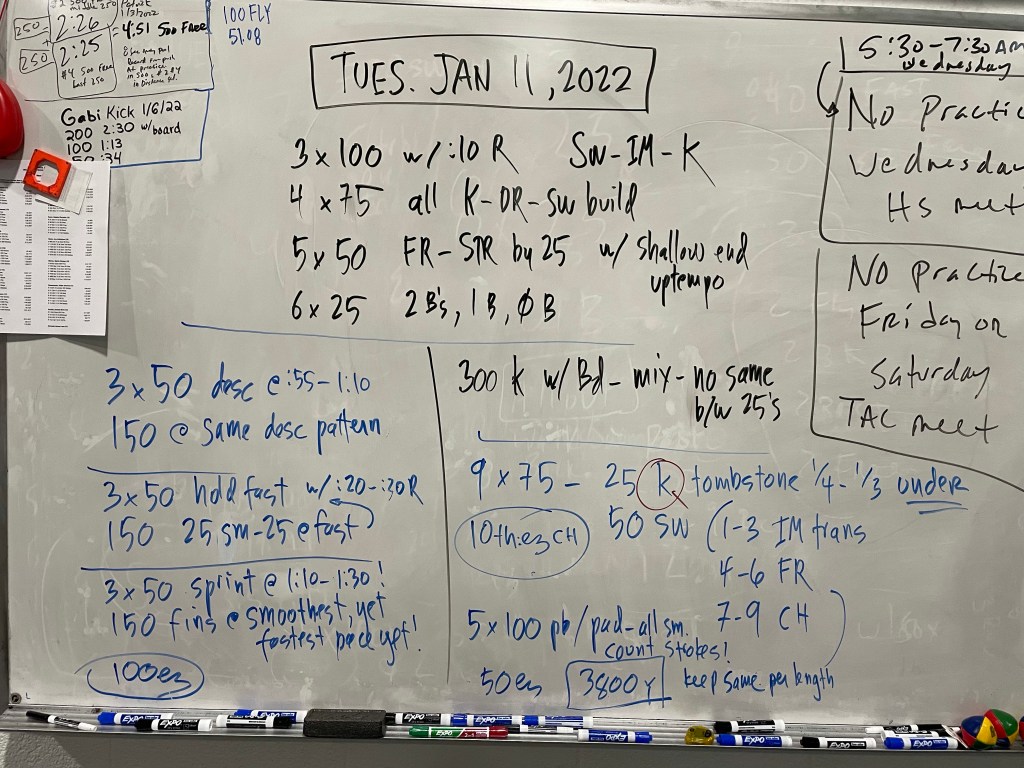 250 2:26 = 4:51 500 Free
250 2:25
#4 500 Free
Last 250
1/3/2022
100 FLY
51.08
Gabi Kick 1/6/22
200 2:30 w/board
100 1:13
50 :34
TUES. JAN 11, 2022
3 x 100 w/ :10 R SW-IM-K
4 x 75 all K-DR-SW build
5 x 50 FR-STR by 25 w/ shallow end
uptempo
6 x 25 2 B's, 1 B, Ø B
5:30-7:30 AM
Wednesday
No Practic
Wednesday
HS meet
NO Practice
Friday or
Saturday
TAC meet
3 x 50 desc @ :55-1:10
150 @ same desc pattern
3 x 50 hold fast w/ :20-:30 R
150 25 sm-25 @ fast
3 x 50 sprint @ 1:10-1:30!
150 fins @ smoothest, yet
fastest pace yet!
100 ez
300 K w/ Bd- mix- no same
b/w 25's
9 x 75 - 25 K tombstone 1/4-1/3 under
50 SW (1-3 IM trans
10th: ez CH
4-6 FR
7-9 CH
5 x 100 pb/pad-all sm.
count strokes!
keep same per length
50 ez 3800 Y
EXPO
EXPO
EXPO
EXPO
EXPO
EXPO
EXPO
EXPO